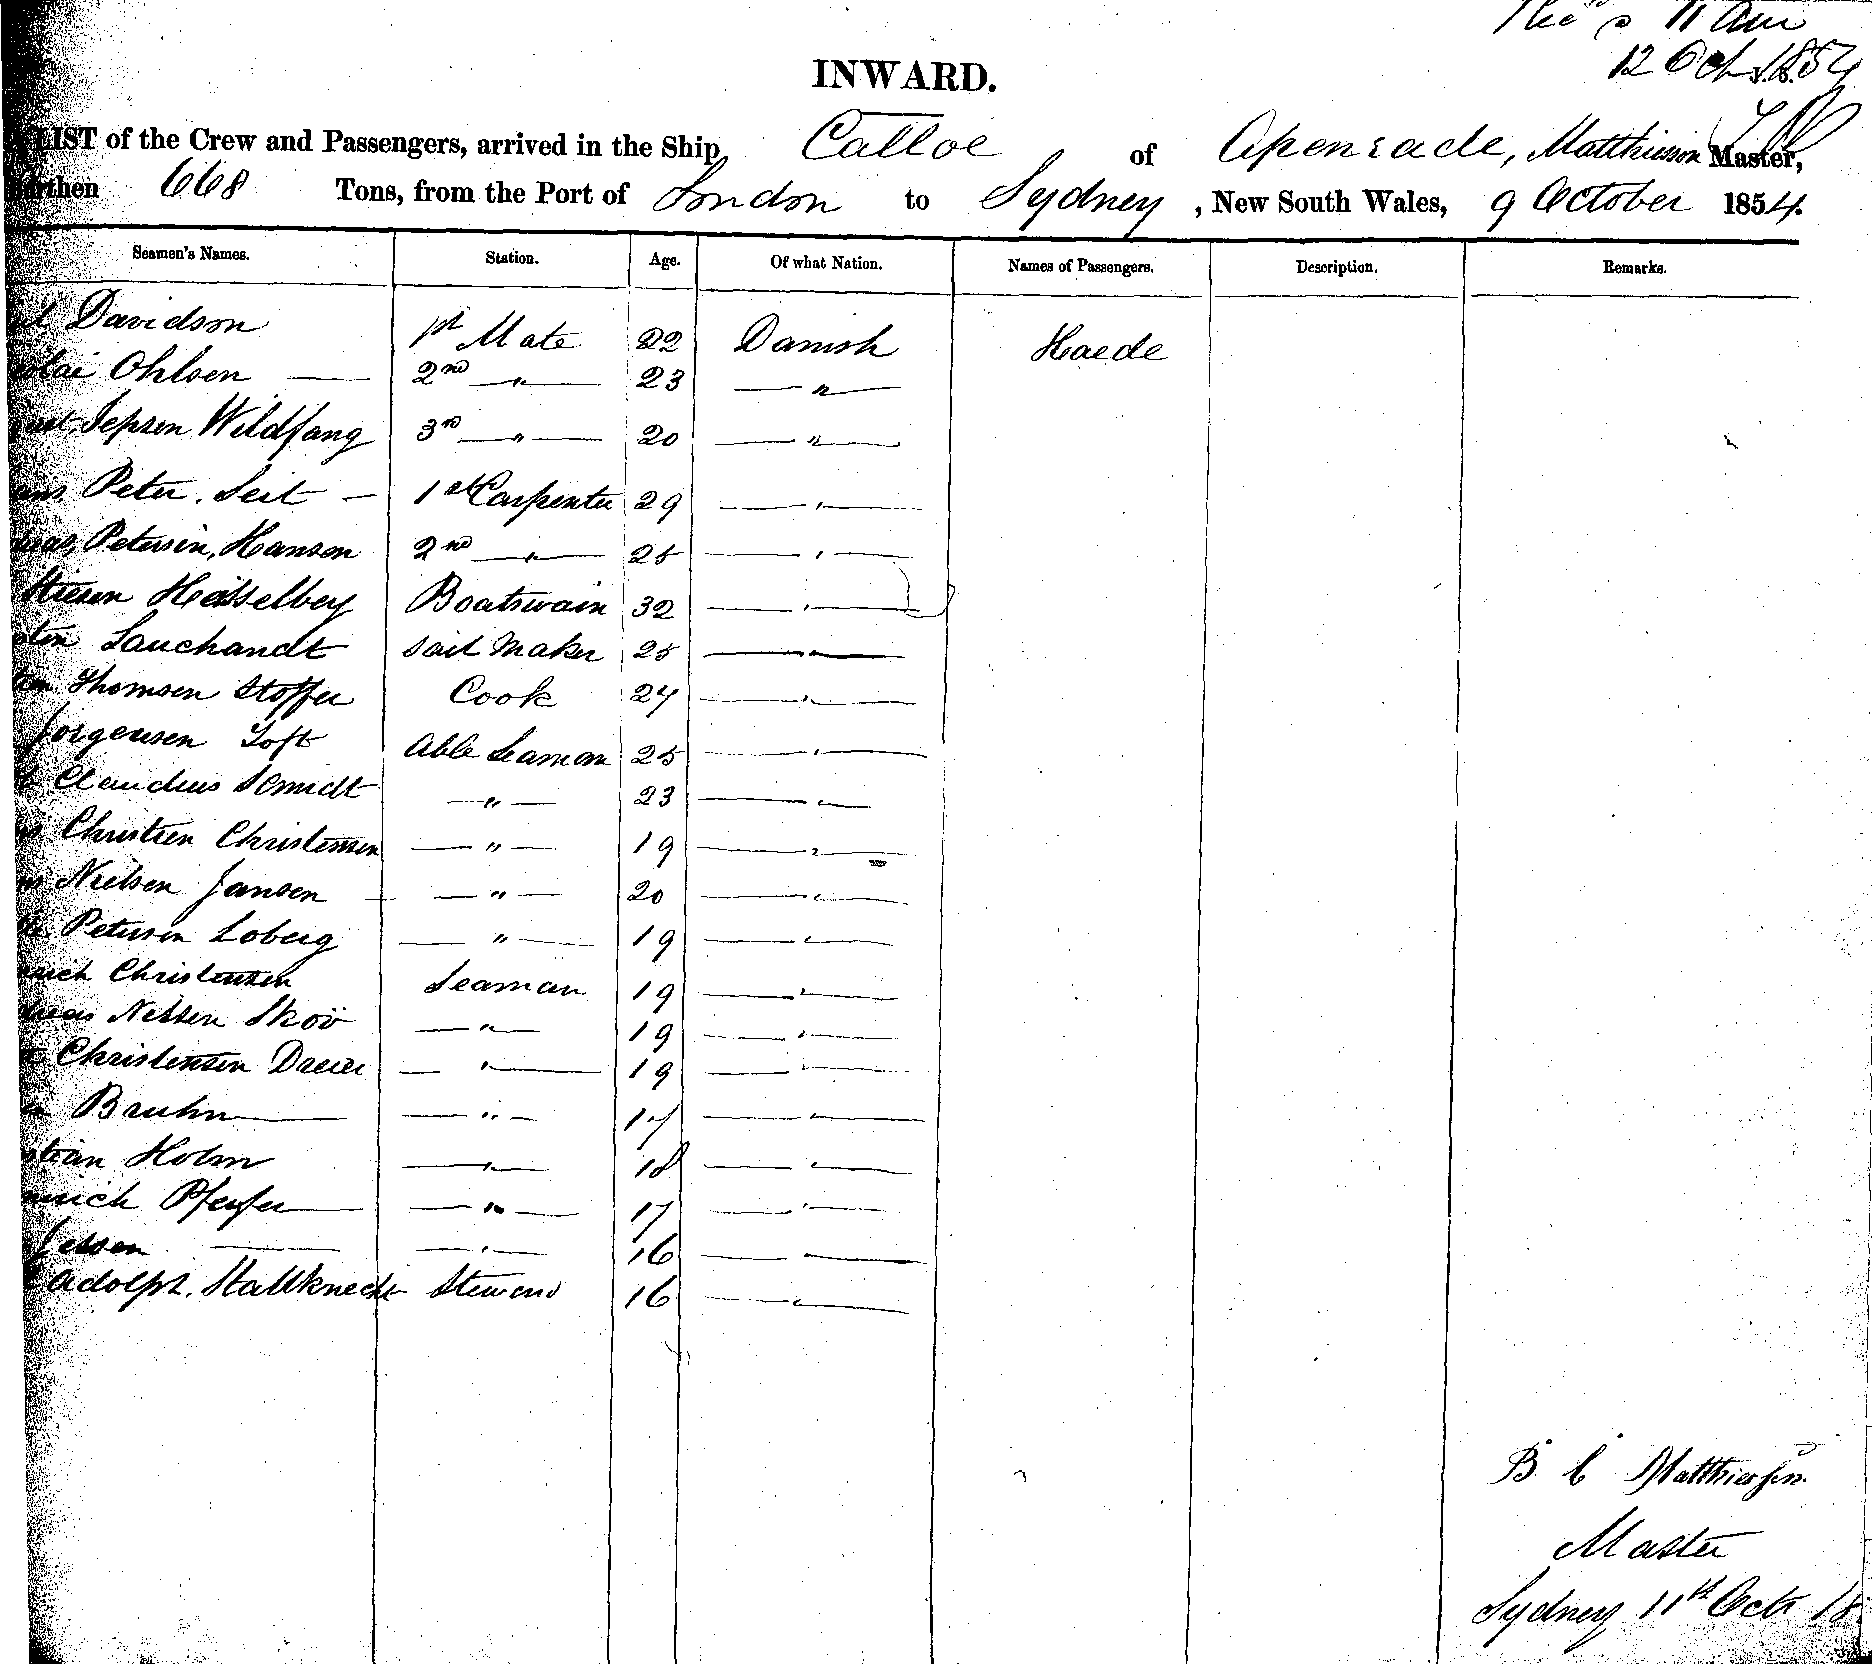 11 Am
12 Oct 1854
INWARD.
LIST of the Crew and Passengers, arrived in the Ship Catloe of Apenrade, Matthiesson Master,
668 Tons, from the Port of London to Sydney, New South Wales, 9 October 1854.
Seamen's Names. Station. Age. Of what Nation. Names of Passengers. Description. Remarks.
Davidson 1st Mate 22 Danish Haede
Ohlsen — 2nd — " — 23 — " —
Jepsen Wildfang 3rd — " — 20 — " —
Peter. Seit — 1st Carpenter 29 — " —
Petersen, Hansen 2nd — " — 25 — " —
Heisselberg Boatswain 32 — " —
Lauchandt Sail Maker 25 — " —
Thomsen Stoffer Cook 24 — " —
Jorgensen Toft Able Seaman 25 — " —
Claudius Schmidt — " — 23 — " —
Christien Christensen — " — 19 — " —
Nielsen Jansen — — " — 20 — " —
Petersen Loberg — " — 19 — " —
Christensen Seaman 19 — " —
Nissen Skov — " — 19 — " —
Christensen Dreier — " — 19 — " —
Bruhn — — " — 17 — " —
Holm — " — 18 — " —
Pfeifer — — " — 17 — " —
Jessen — — " — 16 — " —
Adolph. Stallknecht Steward 16 — " —
B C Matthiessen
Master
Sydney 11th Octr 18